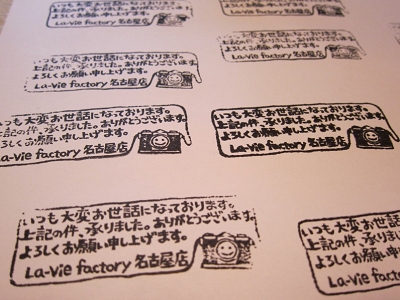 ろしくお願い申し上げます。
La-Vie factory 名古屋店
いつも大変お世話になっております。
上記の件、承りました。ありがとうございます。
よろしくお願い申し上げます。
La-Vie factory 名古屋店
よろしくお願い申し上げます。
いつも大変お世話になっております。
上記の件、承りました。ありがとうございます。
よろしくお願い申し上げます。
La-Vie factory 名古屋店
いつも大変お世話になっております。
上記の件、承りました。ありがとうございます。
よろしくお願い申し上げます。
La-Vie factory 名古屋店
いつも大変お世話になっております。
上記の件、承りました。ありがとうございます。
よろしくお願い申し上げます。
La-Vie factory 名古屋店
いつも大変お世話に
上記の件、承りまし
よろしくお願い申し
La-Vie factory